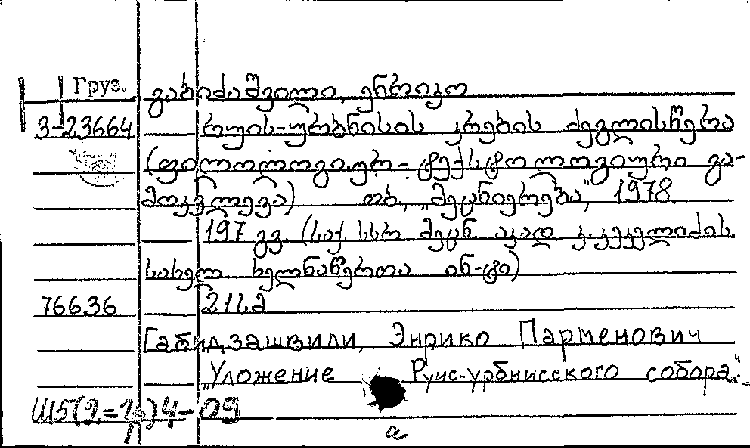 Груз. გაბიძაშვილი, ენრიკო
3-23664 რუის-ურბნისის კრების ძეგლისწერა
(ფილოლოგიურ-ტექსტოლოგიური გა-
მოკვლევა) თბ., „მეცნიერება“, 1978
197 გვ. (საქ. სსრ მეცნ. აკად. კ. კეკელიძის
სახელ. ხელნაწერთა ინ-ტი)
76636
Габидзашвили, Энрико Парменович
„Уложение Руис-урбнисского собора."
а